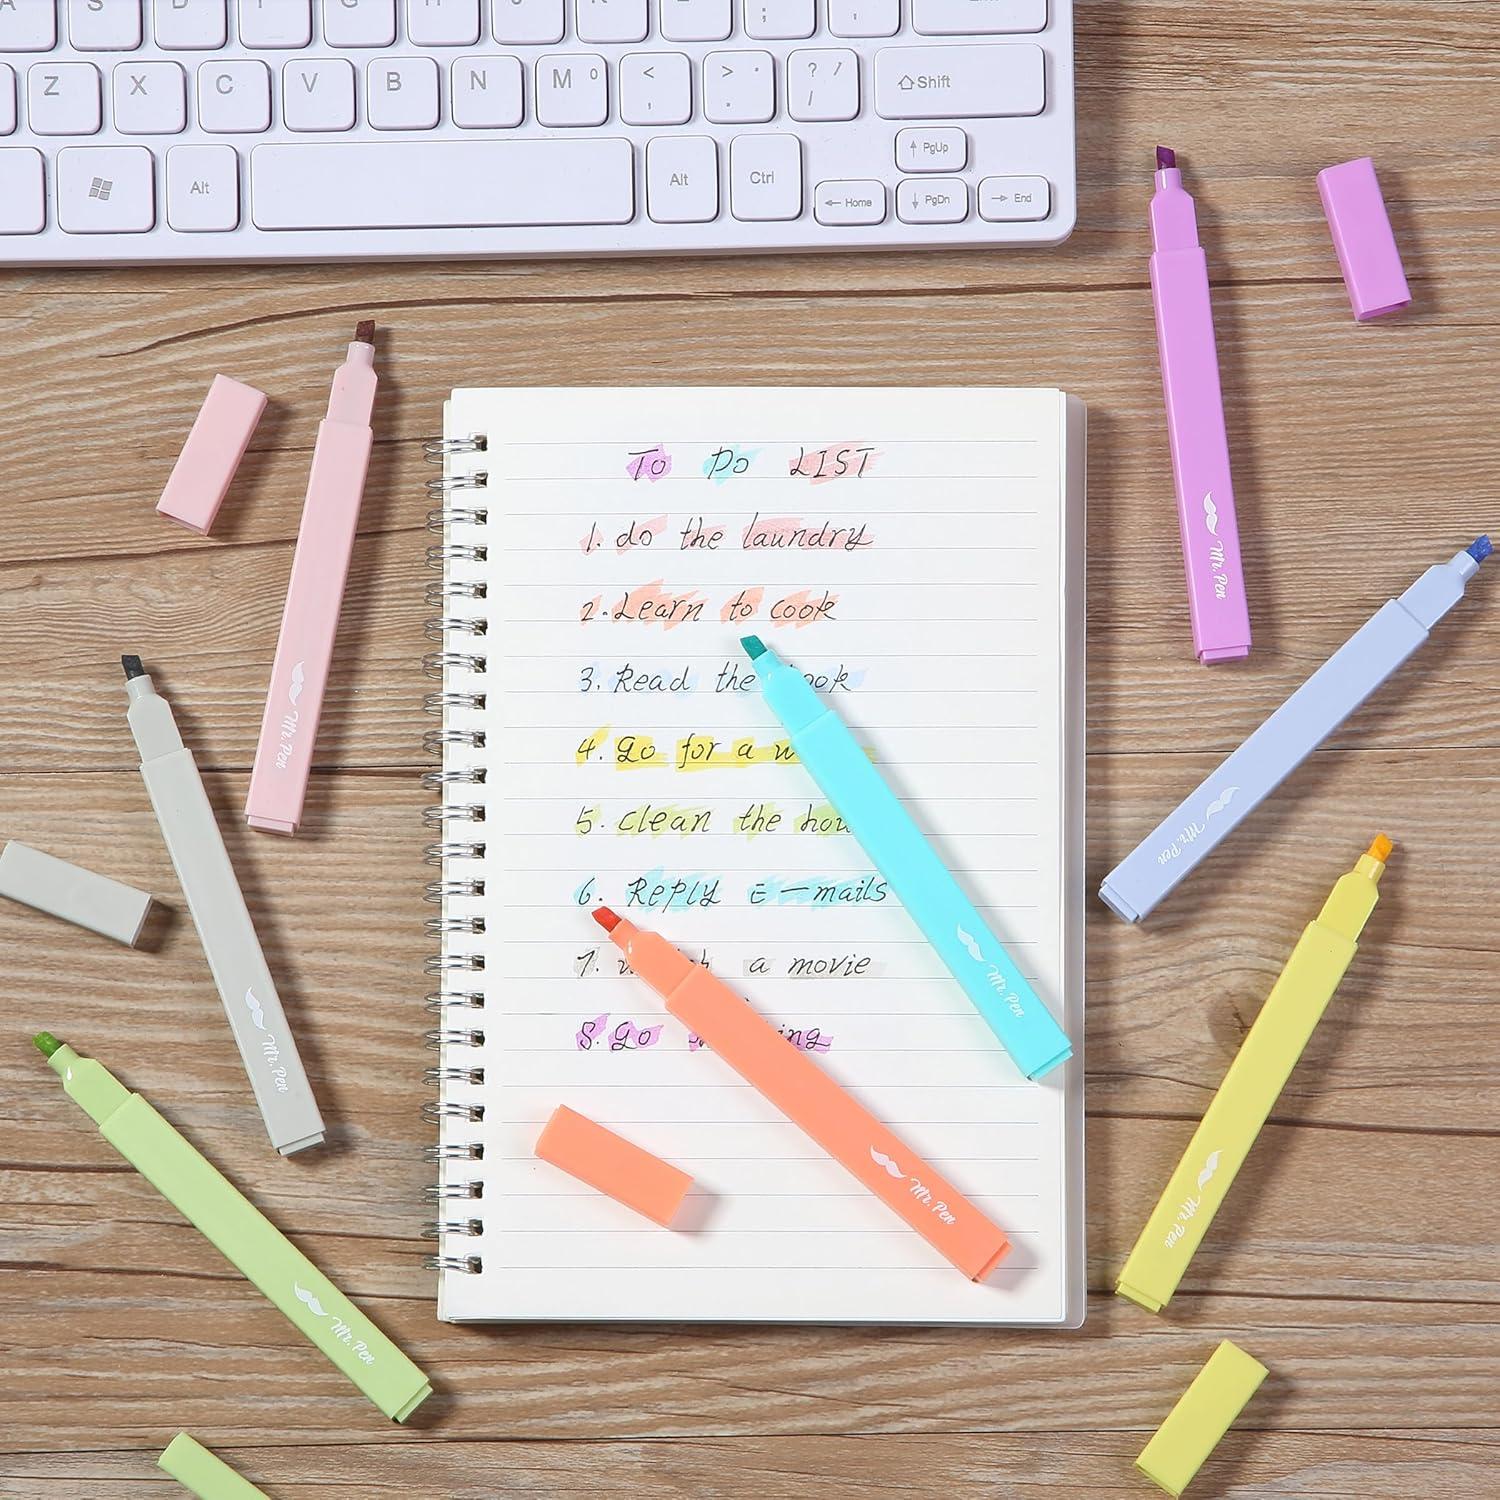 A S D F G H J K L ; ,
Z X C V B N M 0 < , > . ? / Shift
Alt Alt Ctrl PgUp
Home PgDn End
TO DO LIST
1. do the laundry
2. Learn to cook
3. Read the book
4. go for a
5. clean the
6. Reply E-mails
7. a movie
8. go
Mr. Pen
Mr. Pen
Mr. Pen
Mr. Pen
Mr. Pen
Mr. Pen
Mr. Pen
Mr. Pen